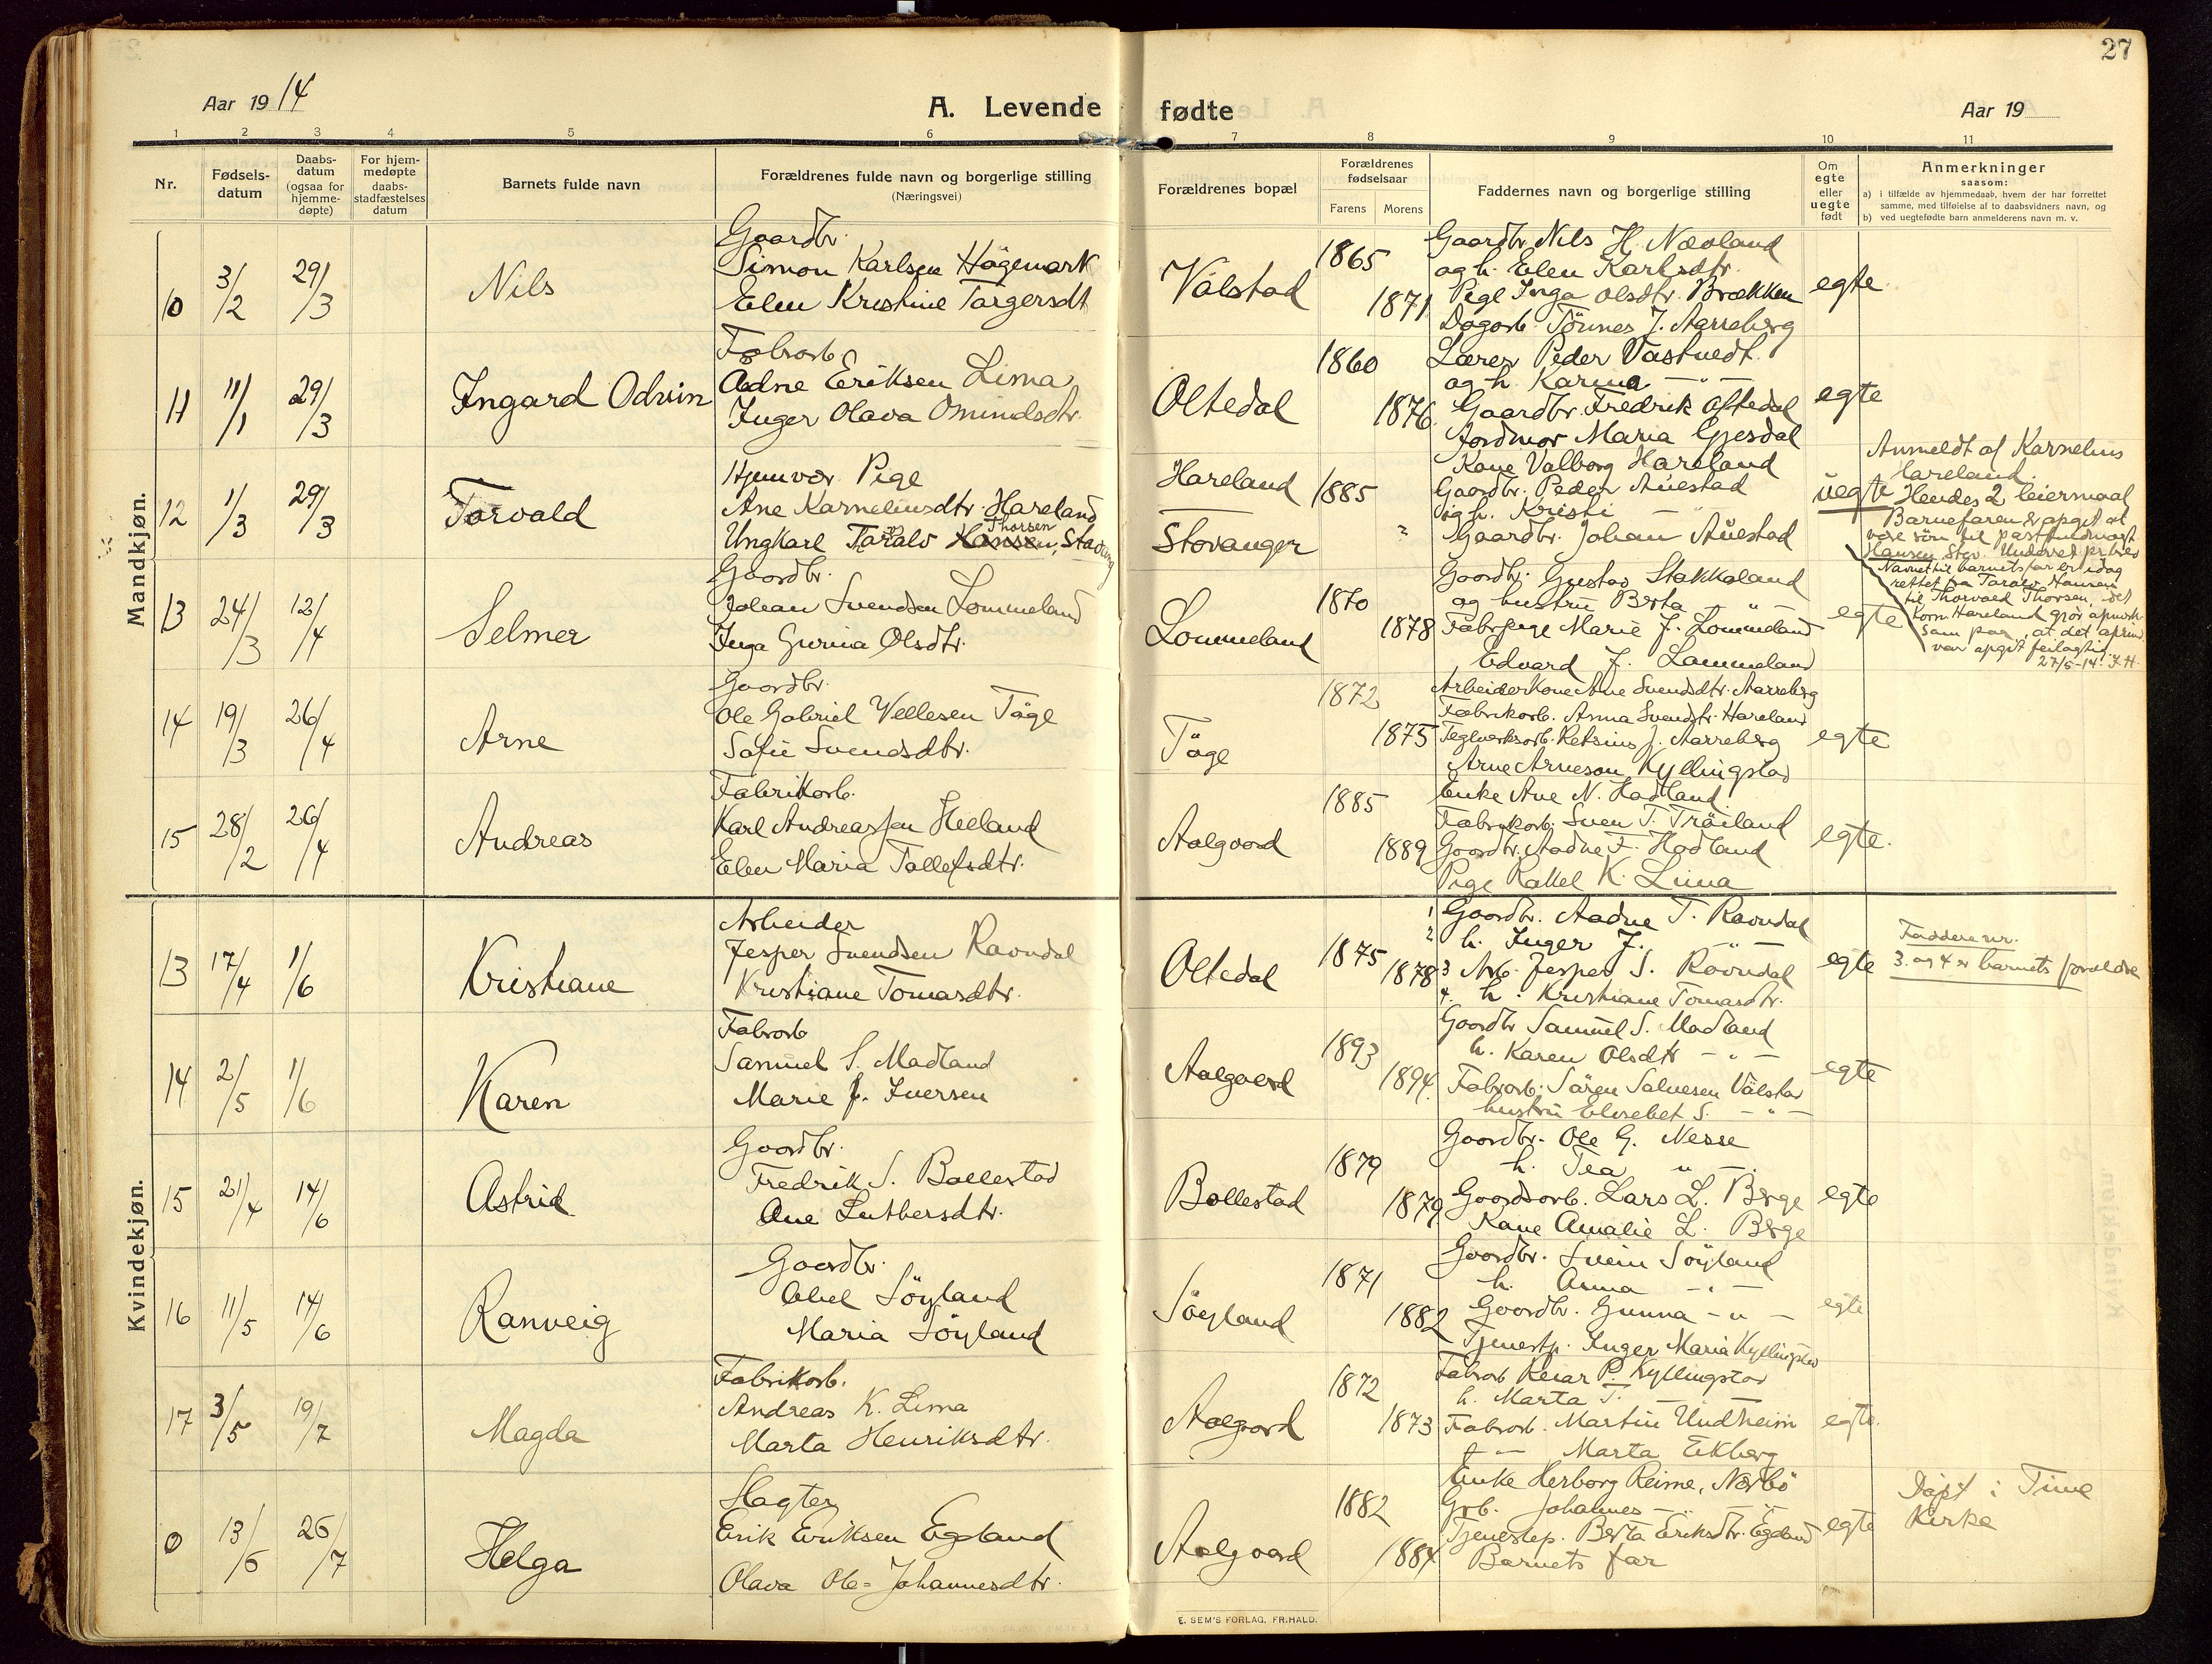 27
Aar 1914
A. Levende fødte
Aar 19
1 2 3 4 5 6 7 8 9 10 11
Nr.
Fødsels-
datum
Daabs-
datum
(ogsaa for
hjemme-
døpte)
For hjem-
medøpte
daabs-
stadfæstelses
datum
Barnets fulde navn
Forældrenes fulde navn og borgerlige stilling
(Næringsvei)
Forældrenes bopæl
Forældrenes
fødselsaar
Farens Morens
Faddernes navn og borgerlige stilling
Om
egte
eller
uegte
født
Anmerkninger
saasom:
a) i tilfælde av hjemmedaab, hvem der har forrettet
samme, med tilføielse af to daabsvidners navn, og
b) ved uegtefødte barn anmelderens navn m. v.
Mandkjøn.
10 3/2 29/3 Nils
Gaardbr.
Simon Karlsen Högemark
Elen Kristine Targersdt
Válstad 1865 1871
Gaardbr. Nils H. Nævland
og h. Elen Karlsdtr.
Pige Inga Olsdtr. Brækken
Dagarb. Tönnes J. Aarreberg
egte
11 11/1 29/3 Ingard Odvin
Fabrarb.
Adne Eriksen Lima
Inger Olava Omundsdtr.
Oltedal 1860 1876
Lærer Peder Vastvedt
og h. Karina — " —
Gaardbr. Fredrik Oftedal
Jordmor Maria Gjesdal
egte
12 1/3 29/3 Torvald
Hjemvær. Pige
Ane Karneliusdtr. Hareland
Ungkarl Taralv Hansen Thorsen, Stavang
Hareland 1885
Stavanger "
Kone Valborg Hareland
Gaardbr. Peder Auestad
og h. Kristi
Gaardbr. Johan Auestad
uegte
Anmeldt af Karnelius
Hareland.
Hendes 2 leiermaal
Barnefaren er opgit at
være sön til
Hansen Stav.
Navnet til barnets far er idag
rettet fra Taralv Hansen
til Thorvald Thorsen, idet
Korn. Hareland gjör opmerk-
som paa, at det
var opgit feilagtig.
27/5-14. J.H.
13 24/3 12/4 Selmer
Gaardbr.
Johan Svendsen Lommeland
Inga Gurina Olsdtr.
Lommeland 1870 1878
Gaardbr. Gustav Stakkaland
og hustru Berta — " —
Fabrpige Marie J. Lommeland
Edvard J. Lammeland
egte
14 19/3 26/4 Arne
Gaardbr.
Ole Gabriel Vellesen Töge
Sofie Svendsdtr.
Töge 1872 1875
Arbeiderkone Ane Svendsdtr. Aarreberg
Fabrikarb. Anna Svendsdtr. Hareland
Teglverksarb. Retsius J. Aarreberg
Arne Arneson Kyllingstad
egte
15 28/2 26/4 Andreas
Fabrikarb.
Karl Andreassen Heeland
Elen Maria Tollefsdtr.
Aalgaard 1885 1889
Enke Ane N. Hadland
Fabrikarb. Sven T. Tröiland
Gaardbr. Aadne F. Hadland
Pige Rakel K. Lima
egte.
Kvindekjøn.
13 17/4 1/6 Kristiane
Arbeider
Jesper Svendsen Ravndal
Kristiane Tomasdtr.
Oltedal 1875 1878
1 Gaardbr. Aadne T. Ravndal
2 h. Inger J. — " —
3 Arb. Jesper S. Ravndal
4. h. Kristiane Tomasdtr.
egte
Faddere nr.
3. og 4 er barnets foreldre
14 2/5 1/6 Karen
Fabrarb
Samuel S. Madland
Marie J. Iversen
Aalgaard 1893 1894.
Gaardbr Samuel S. Madland
h. Karen Olsdtr — " —
Fabrarb. Sören Salvesen Válstad
hustru Elisebet S. — " —
egte
15 21/4 14/6 Astrid
Gaardbr.
Fredrik S. Bollestad
Ane Luthersdtr.
Bollestad 1879 1879
Gaardbr. Ole G. Nesse
h. Tea " —
Gaardsarb. Lars L. Berge
Kone Amalie L. Berge
egte
16 11/5 14/6 Ranveig
Gaardbr.
Abel Söyland
Maria Söyland
Söyland 1871 1882
Gaardbr. Svein Söyland
h. Anna — " —
Gaardbr. Gunna — " —
Tjenestp. Inger Maria Kyllingstad
egte
17 3/5 19/7 Magda
Fabrikarb.
Andreas K. Lima
Marta Henriksdtr.
Aalgaard 1872 1873
Fabrarb P. Kyllingstad
h. Marta T.
Fabrarb. Martin Undheim
— " — Marta Eikberg
egte.
0 13/6 26/7 Helga
Slagter
Erik Eriksen Egeland
Olava Ole-Johannesdtr.
Aalgaard 1882 1884
Enke Herborg Reime, Nærbö
Grb. Johannes — " —
Tjenestep. Berta Eriksdtr. Egeland
Barnets far
egte
Döpt i Time
Kirke
E. SEM'S FORLAG, FR.HALD.